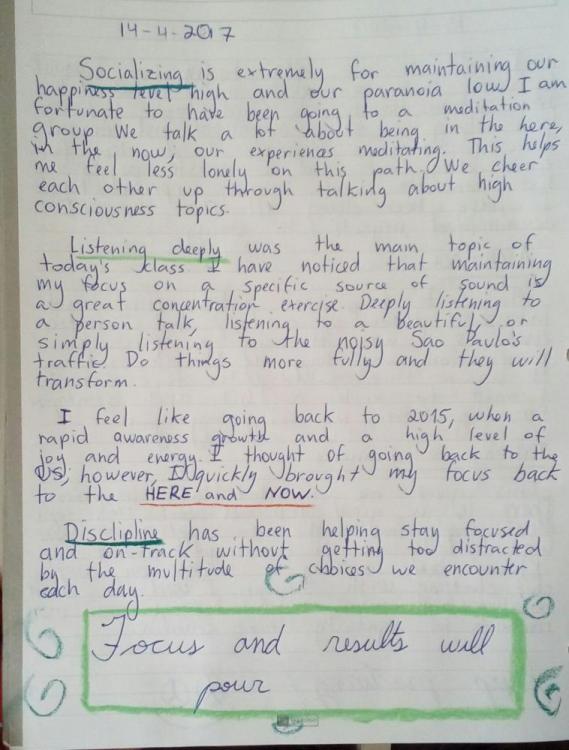 14-4-2017
Socializing is extremely for maintaining our
happiness level high and our paranoia low I am
fortunate to have been going to a meditation
group We talk a lot about being in the here,
in the now, our experiences meditating. This helps
me feel less lonely on this path. We cheer
each other up through talking about high
consciousness topics.
Listening deeply was the main topic of
today's class I have noticed that maintaining
my focus on a specific source of sound is
a great concentration exercise. Deeply listening to
a person talk, listening to a beautiful, or
simply listening to the noisy Sao Paulo's
traffic. Do things more fully and they will
transform.
I feel like going back to 2015, when a
rapid awareness growth and a high level of
joy and energy. I thought of going back to the
US, however, I quickly brought my focus back
to the HERE and NOW.
Discipline has been helping stay focused
and on-track without getting too distracted
by the multitude of choices we encounter
each day.
Focus and results will
pour